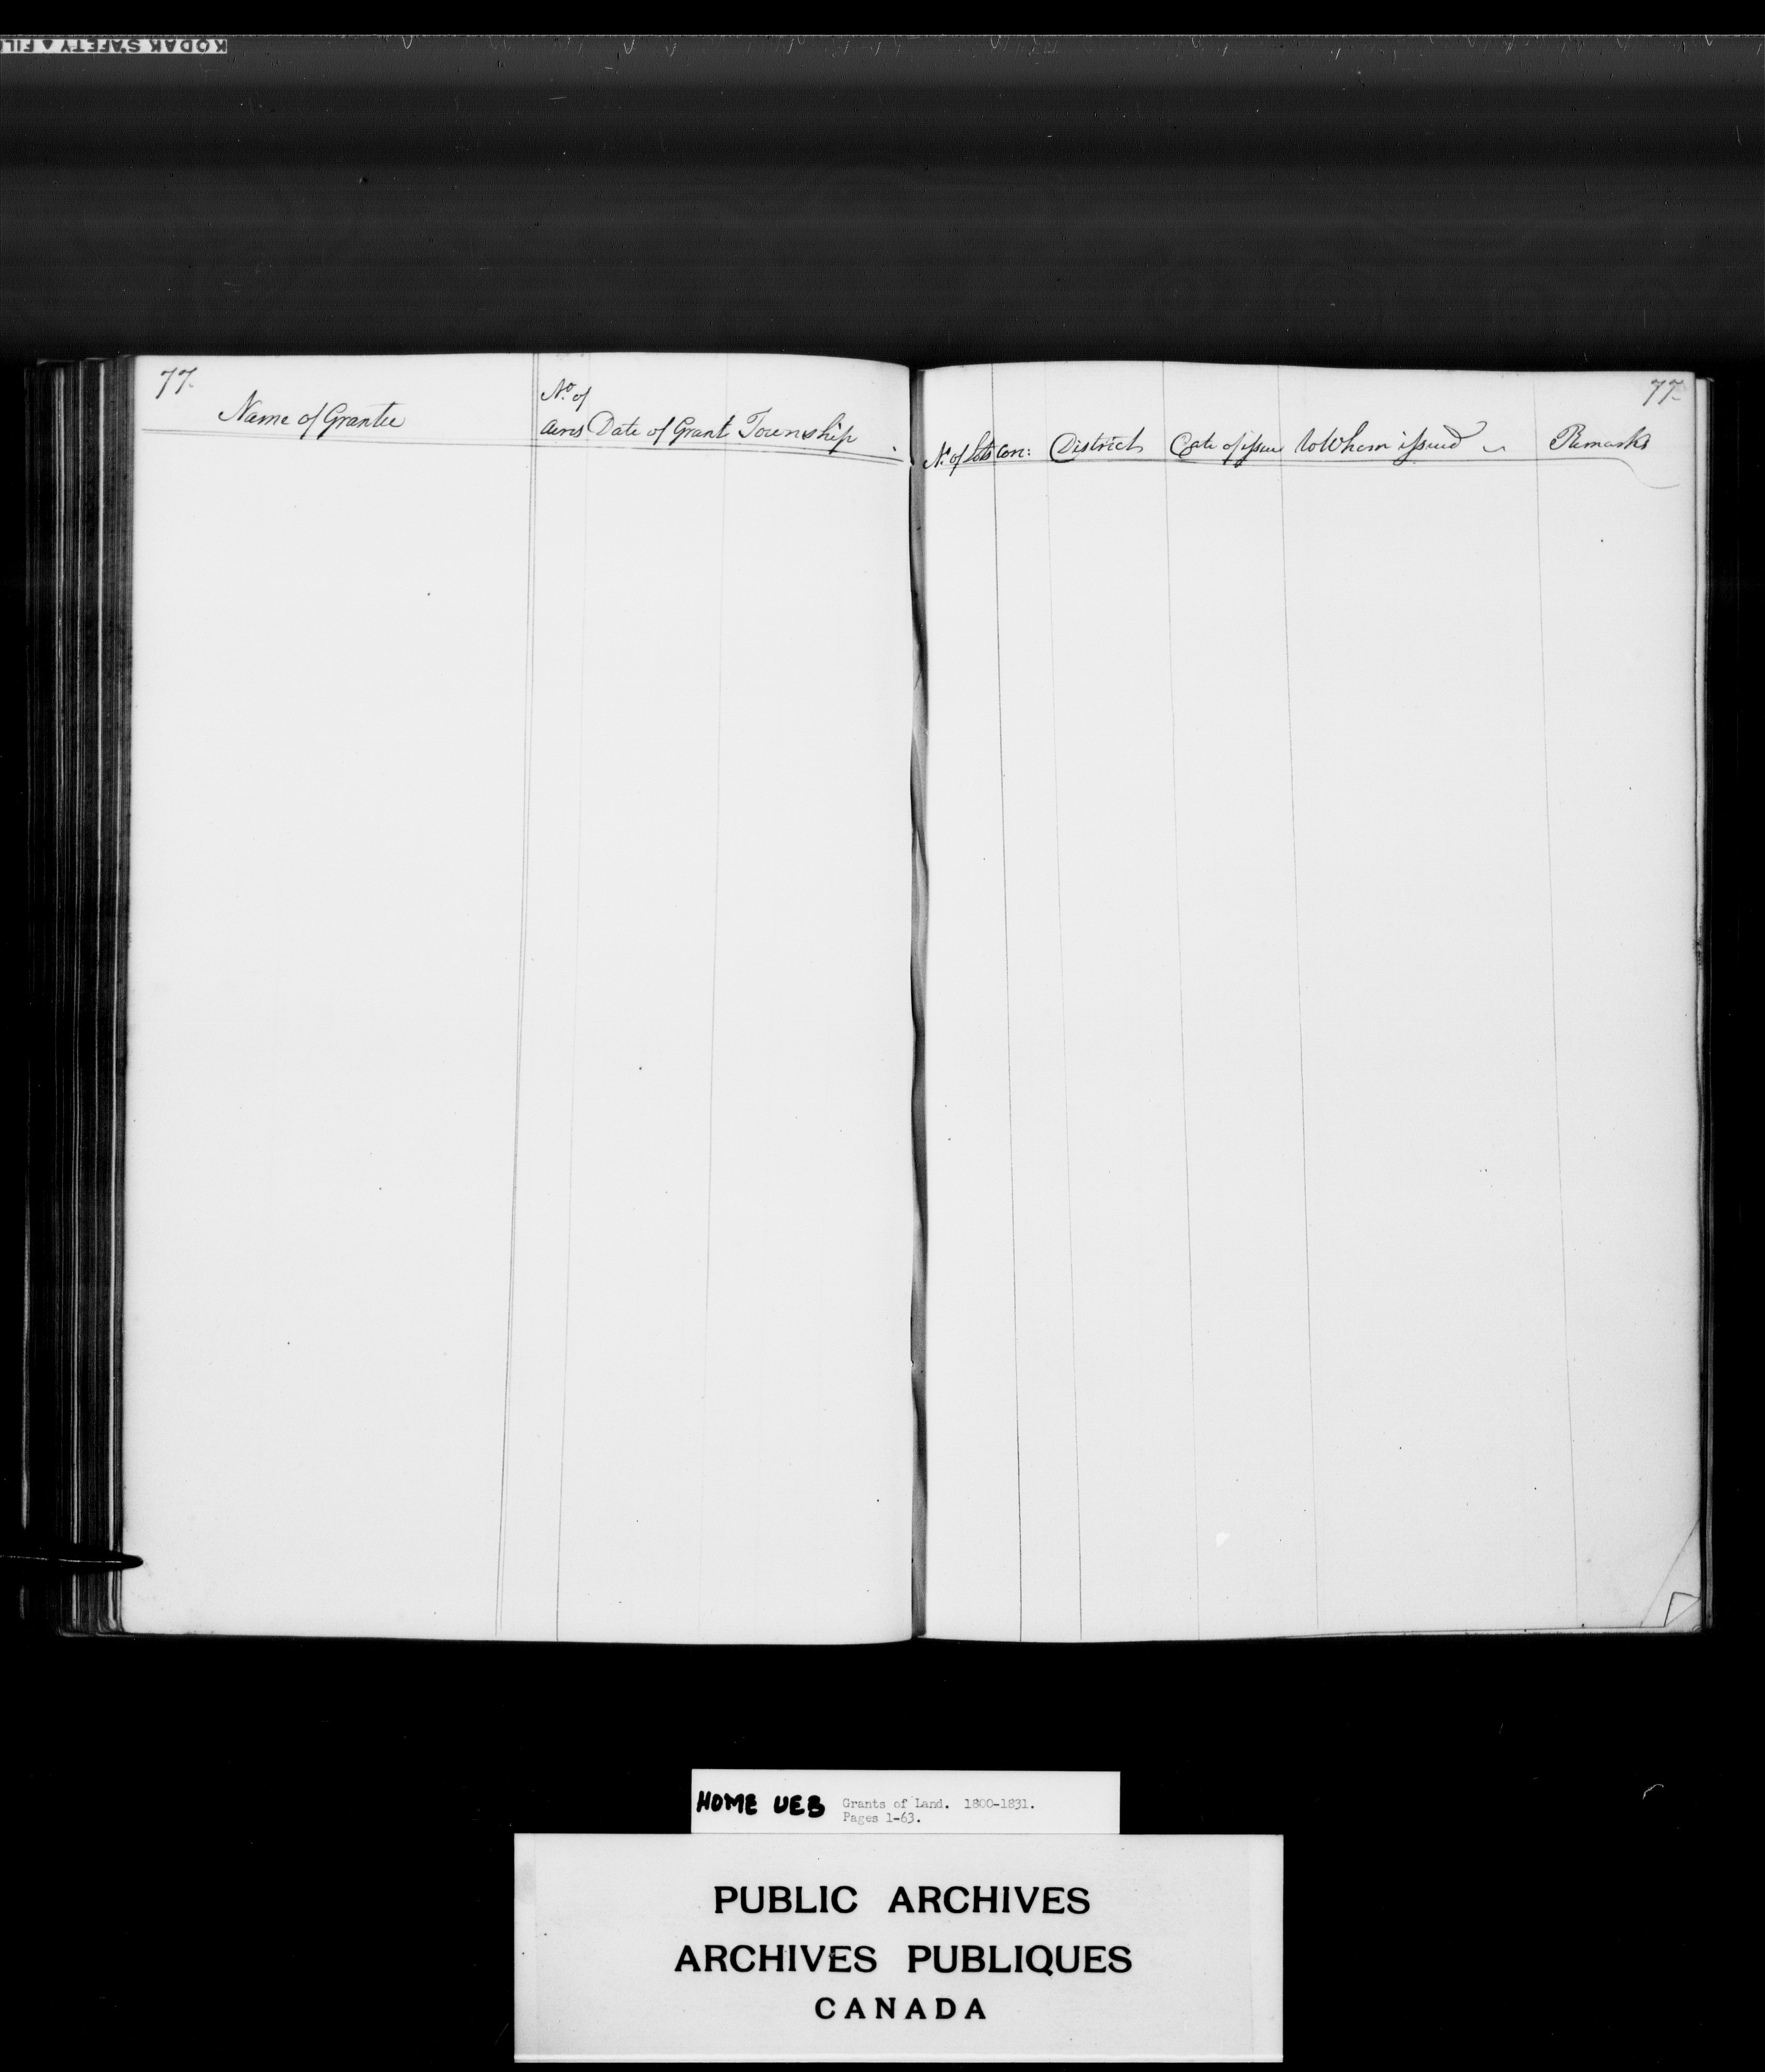 KODAK SAFETY ▲ FIL
77.
Name of Grantee
No. of
acres Date of Grant Township
77.
No. of lots Con: District Date of issue to Whom issued Remarks
HOME UEB Grants of Land. 1800-1831.
Pages 1-63.
PUBLIC ARCHIVES
ARCHIVES PUBLIQUES
CANADA